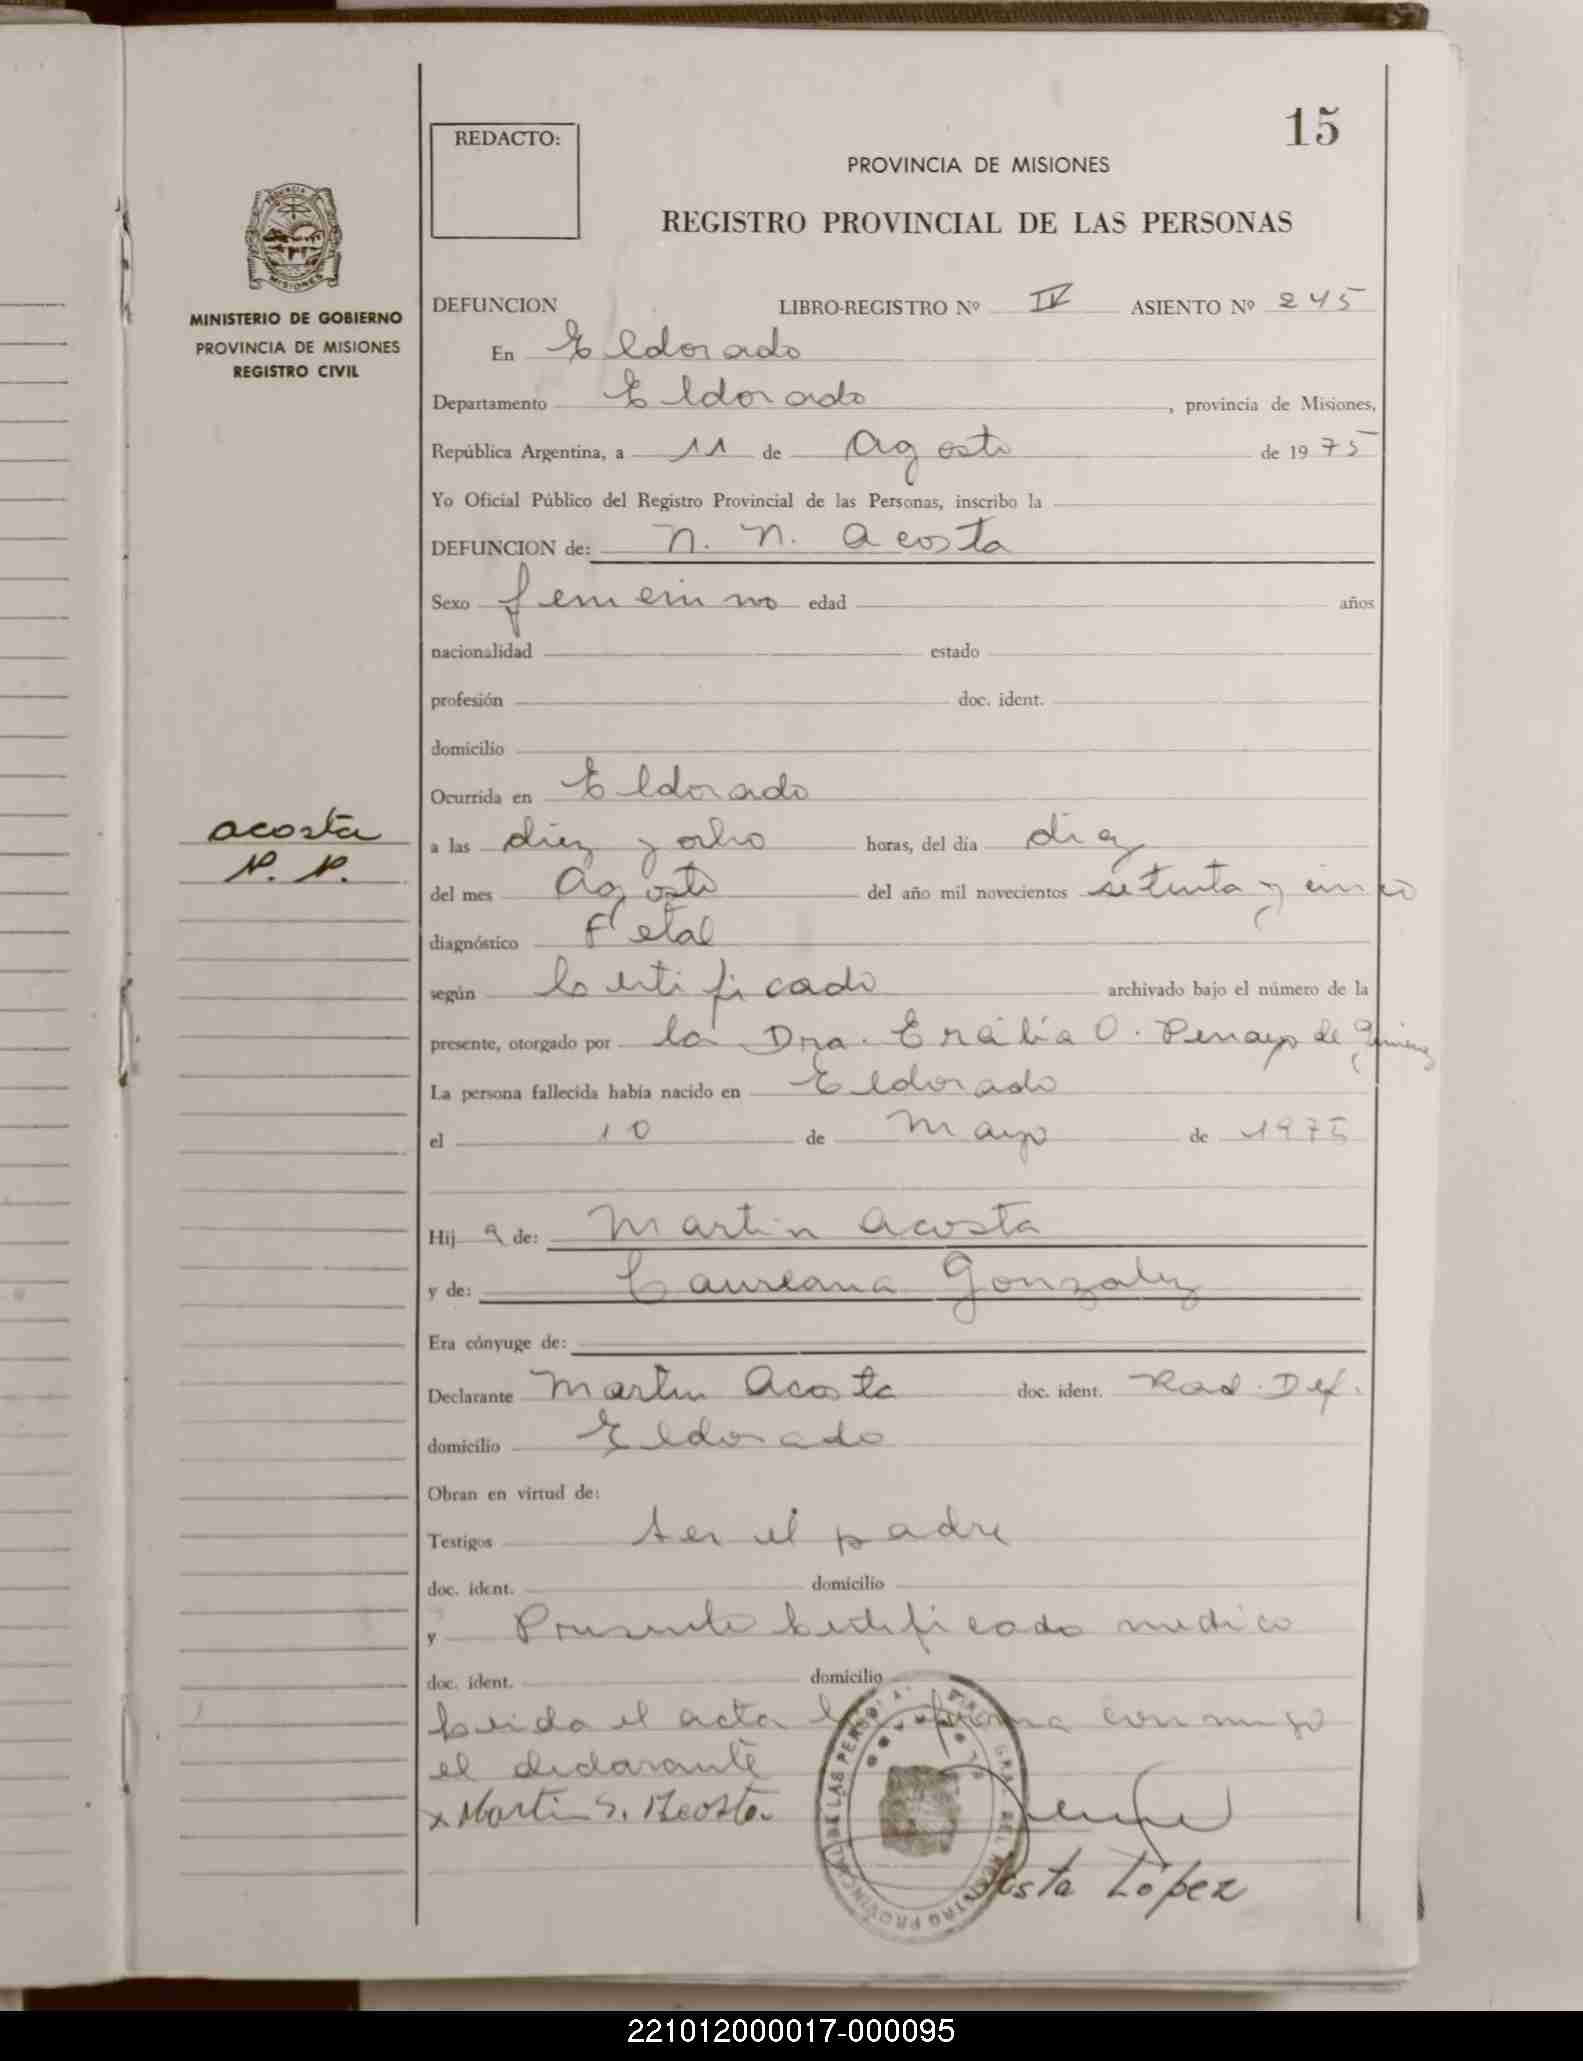 15
REDACTO:
PROVINCIA DE MISIONES
REGISTRO PROVINCIAL DE LAS PERSONAS
MINISTERIO DE GOBIERNO
PROVINCIA DE MISIONES
REGISTRO CIVIL
DEFUNCION LIBRO-REGISTRO Nº IV ASIENTO Nº 245
En Eldorado
Departamento Eldorado, provincia de Misiones,
República Argentina, a 11 de Agosto de 1975
Yo Oficial Público del Registro Provincial de las Personas, inscribo la
DEFUNCION de: N. N. Acosta
Sexo femenino edad años
nacionalidad estado
profesión doc. ident.
domicilio
Ocurrida en Eldorado
acosta
N. N.
a las diez y ocho horas, del día diez
del mes Agosto del año mil novecientos setenta y cinco
diagnóstico Fetal
según Certificado archivado bajo el número de la
presente, otorgado por la Dra. O. Penayo de
La persona fallecida había nacido en Eldorado
el 10 de Mayo de 1975
Hija de: Martin Acosta
y de: Gonzalez
Era cónyuge de:
Declarante Martin Acosta doc. ident. Rad. Def.
domicilio Eldorado
Obran en virtud de:
Testigos ser el padre
doc. ident. domicilio
y Presente Certificado medico
doc. ident. domicilio
Leida el acta la firma conmigo
el declarante
x Martin S. Acosta.
López
221012000017-000095